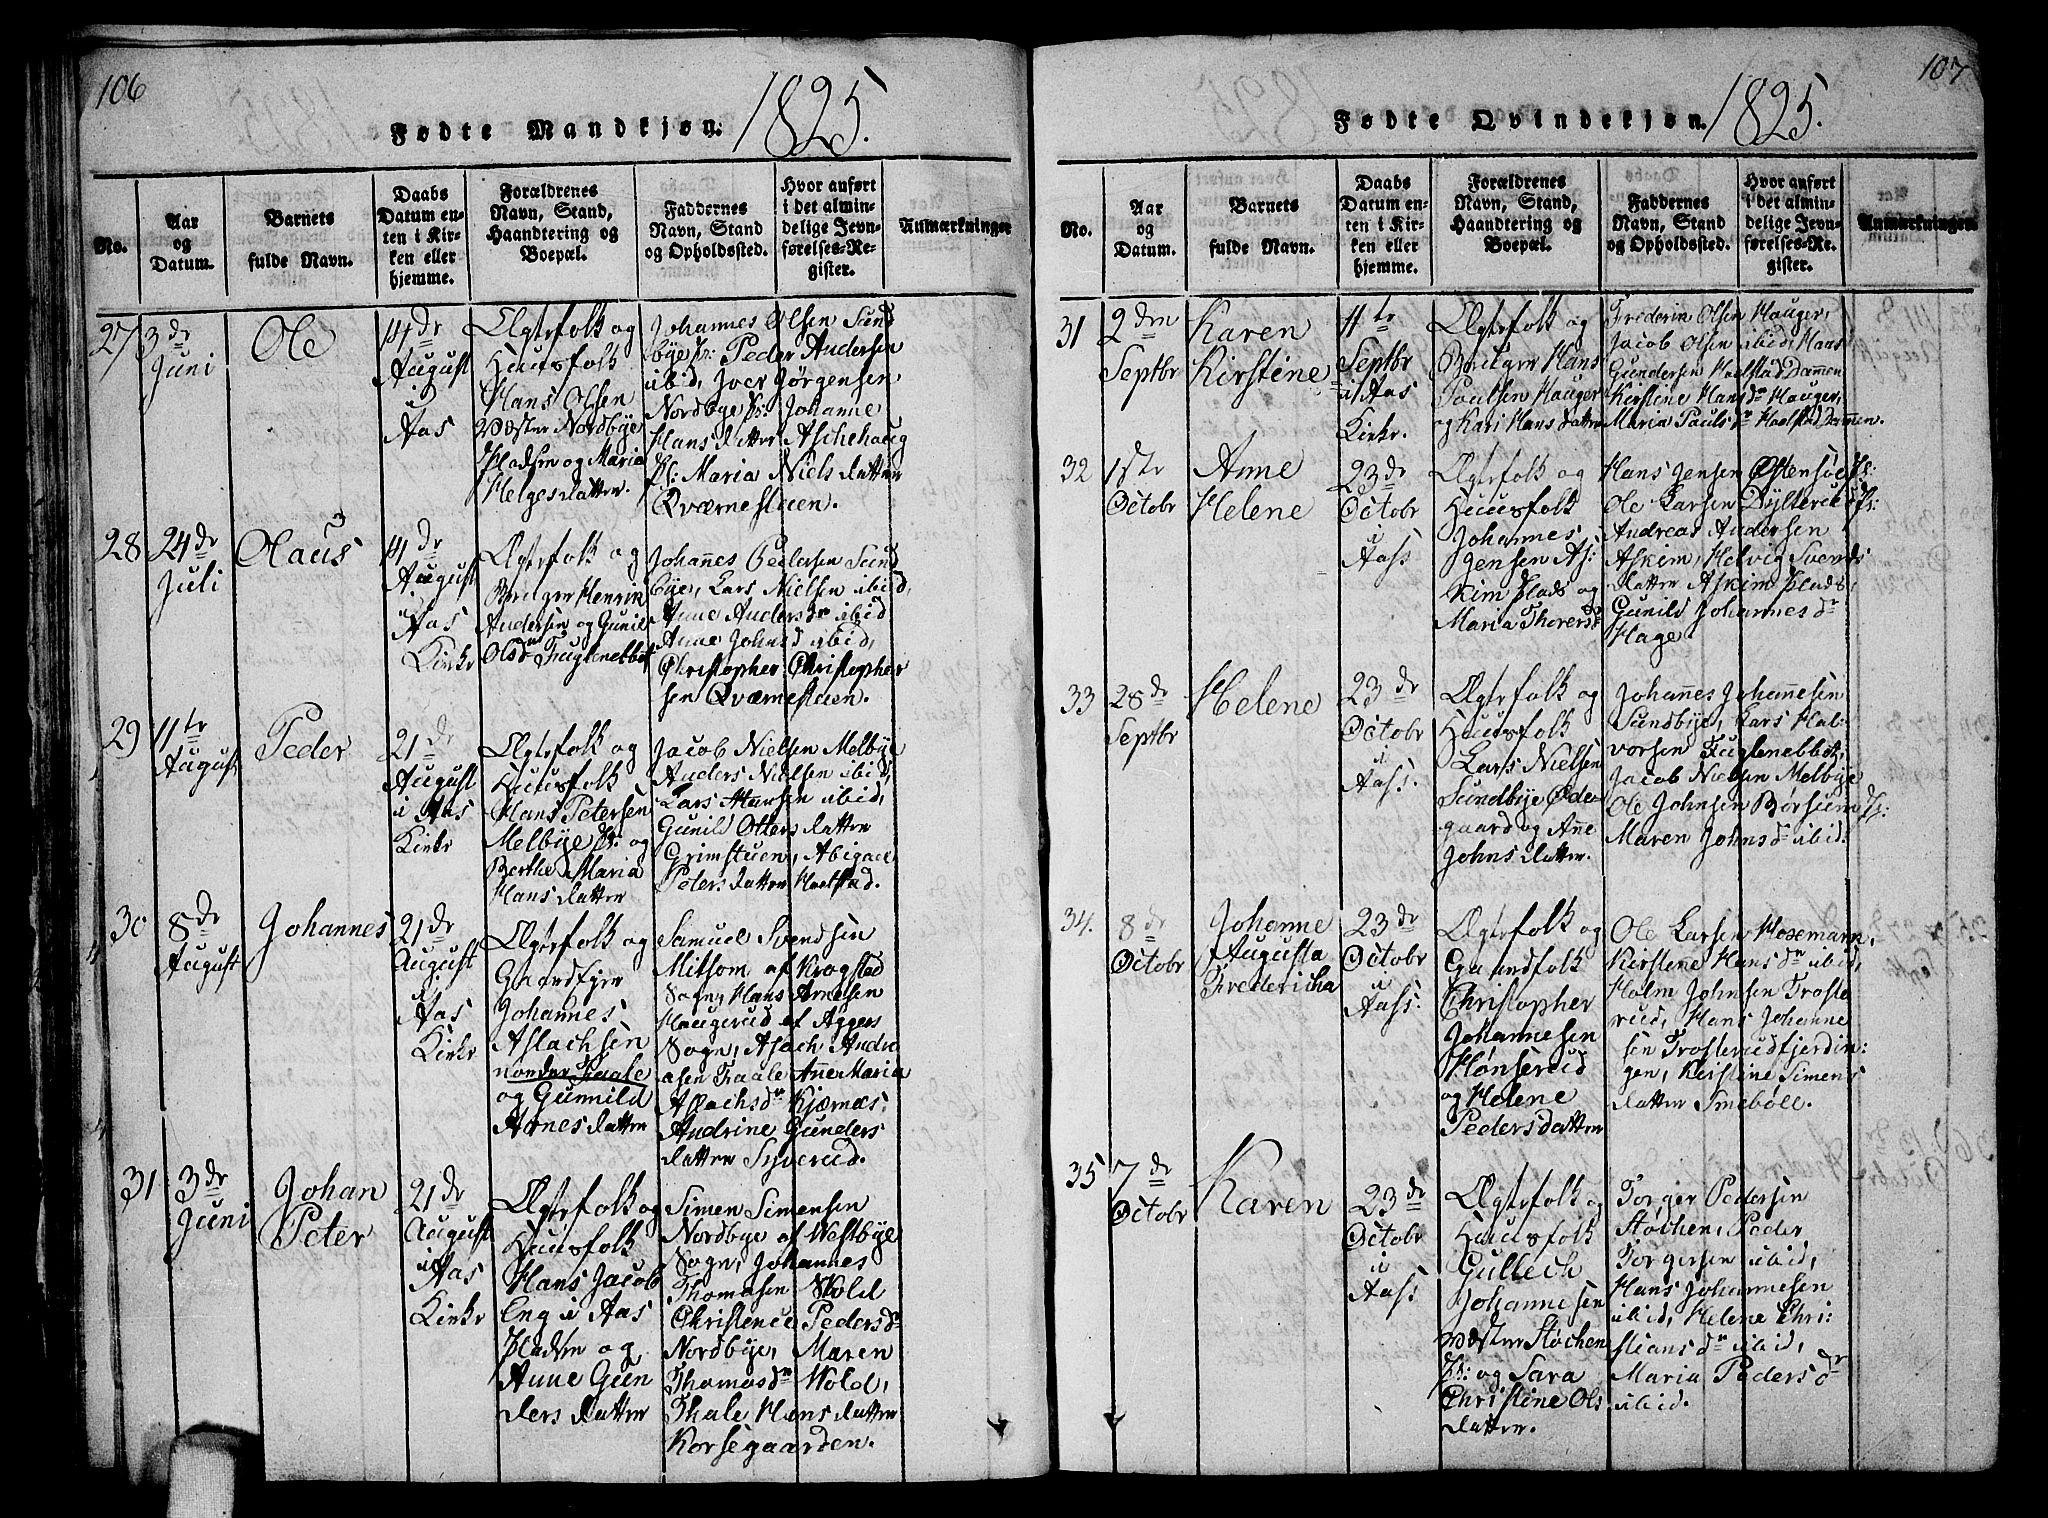 106
1825.
Fødte Mandkjøn.
No.
Aar
og
Datum.
Barnets
fulde Navn.
Daabs
Datum en-
ten i Kir-
ken eller
hjemme.
Forældrenes
Navn, Stand,
Haandtering og
Boepæl.
Faddernes
Navn, Stand
og Opholdssted.
Hvor anført
i det almin-
delige Jevn-
førelses-Re-
gister.
Anmærkninger
27
3dr
Juni
Ole
14dr
August
i
Aas
Ægtefolk og
Huusfolk
Hans Olsen
Vester Nordbye
Pladsen og Maria
Helgesdatter.
Johannes Olsen Sund
bye Pl: Peder Andersen
ibid, Iver Jørgensen
Nordbye Pl: Johanne
Hansdatter Aschehaug
Pl: Maria Nielsdatter
Qværnestuen.
28
24dr
Juli
Olaus
14dr
August
i
Aas
Kirke
Ægtefolk og
Brulger Henrik
Andersen og Gunil
Olsdr Fuglenebbet
Johañes Pedersen Sund
bye, Lars Nielsen ibid,
Anne Andersdr ibid
Anne Johnsd ibid,
Christopher Christopher
sen Qværnestuen.
29
11te
August
Peder
21dr
August
i Aas
Kirke
Ægtefolk og
Huusfolk
Hans Petersen
Melbye Pl: og
Berthe Maria
Hansdatter
Jacob Nielsen Melbye
Anders Nielsen ibid,
Lars Hansen ibid,
Gunild Ottersdatter
Grimstuen, Abigael
Petersdatter Haelstad.
30
8dr
August
Johannes
21dr
August
i
Aas
Kirke
Ægtefolk og
Gaardfjer
Johannes
Aslachsen
nordre Fraale
og Gunnild
Arnesdatter
Samuel Svendsen
Mitsom af Krogstad
Sogn, Hans Arnesen
Haugerud af Aggers
Sogn, Aslach Andre
asen Fraale, Anne Maria
Aslachsdr Kjærnæs,
Andrine Gunders
datter Syverud.
31
3dr
Juni
Johan
Peter
21dr
August
i
Aas
Kirke
Ægtefolk og
Huusfolk
Hans Jacob
Eng i Aas
Pladsen og
Anne Gun
dersdatter
Simen Simensen
Nordbye af Westbye
Sogn, Johannes
Thomasen Wold
Christence Pedersdr
Nordbye, Maren
Thomasdr Wold,
Thale Hansdatter
Korsegaarden.
107
1825.
Fødte Qvindekjøn.
No.
Aar
og
Datum.
Barnets
fulde Navn.
Daabs
Datum en-
ten i Kir-
ken eller
hjemme.
Forældrenes
Navn, Stand,
Haandtering og
Boepæl.
Faddernes
Navn, Stand
og Opholdssted.
Hvor anført
i det almin-
delige Jevn-
førelses-Re-
gister.
Anmærkninger
31
2den
Septbr
Karen
Kirstine
11te
Septbr
i Aas
Kirke.
Ægtefolk og
Brulger Hans
Paulsen Hauger
og Kari Hansdatter
Frederik Olsen Hauger,
Jacob Olsen ibid, Hans
Gundersen Haelstad Dammen
Kirstine Hansdr Hauger,
Maria Paulsdr Haelstad Dammen.
32
1ste
Octobr
Anne
Helene
23dr
Octobr
i
Aas:
Ægtefolk og
Huusfolk
Johannes
Jensen As:
kim Plads og
Maria Thorersdr
Hans Jensen Østensøe Pl:
Ole Larsen Dytterud Pl:
Andreas Andersen
Askim, Helvig Svends
datter Askim Plads,
Gunild Johannesdr
Hage.
33
28dr
Septbr
Helene
23dr
Octobr
i
Aas:
Ægtefolk og
Huusfolk
Lars Nielsen
Sundbye Øde-
gaard og Añe
Johnsdatter.
Johañes Johañesen
Sundbye, Lars Hal-
vorsen Fuglenebbet,
Jacob Nielsen Melbye
Ole Johnsen Børsum Pl:
Maren Johnsdr ibid.
34.
8dr
Octobr
Johanne
Augusta
Fredericha
23dr
Octobr
i
Aas:
Ægtefolk og
Gaardfolk
Christopher
Johannesen
Hønserud
og Helene
Pedersdatter
Ole Larsen Hosemarn,
Kirstene Hansdr ibid,
Holm Johnsen Troste
rud, Hans Johanne
sen Trosterudfjerdin:
gen, Kirstine Simens
datter Smeböll.
35
7dr
Octobr
Karen
23dr
Octobr
i
Aas:
Ægtefolk og
Huusfolk
Gullech
Johannesen
Vester Støchen
Pl: og Sara
Christine Ols
datter.
Torger Pedersen
Støchen, Peder
Torgersen ibid,
Hans Johannesen
ibid, Helene Chri:
stiansdr ibid,
Maria Pedersdr
ibid.